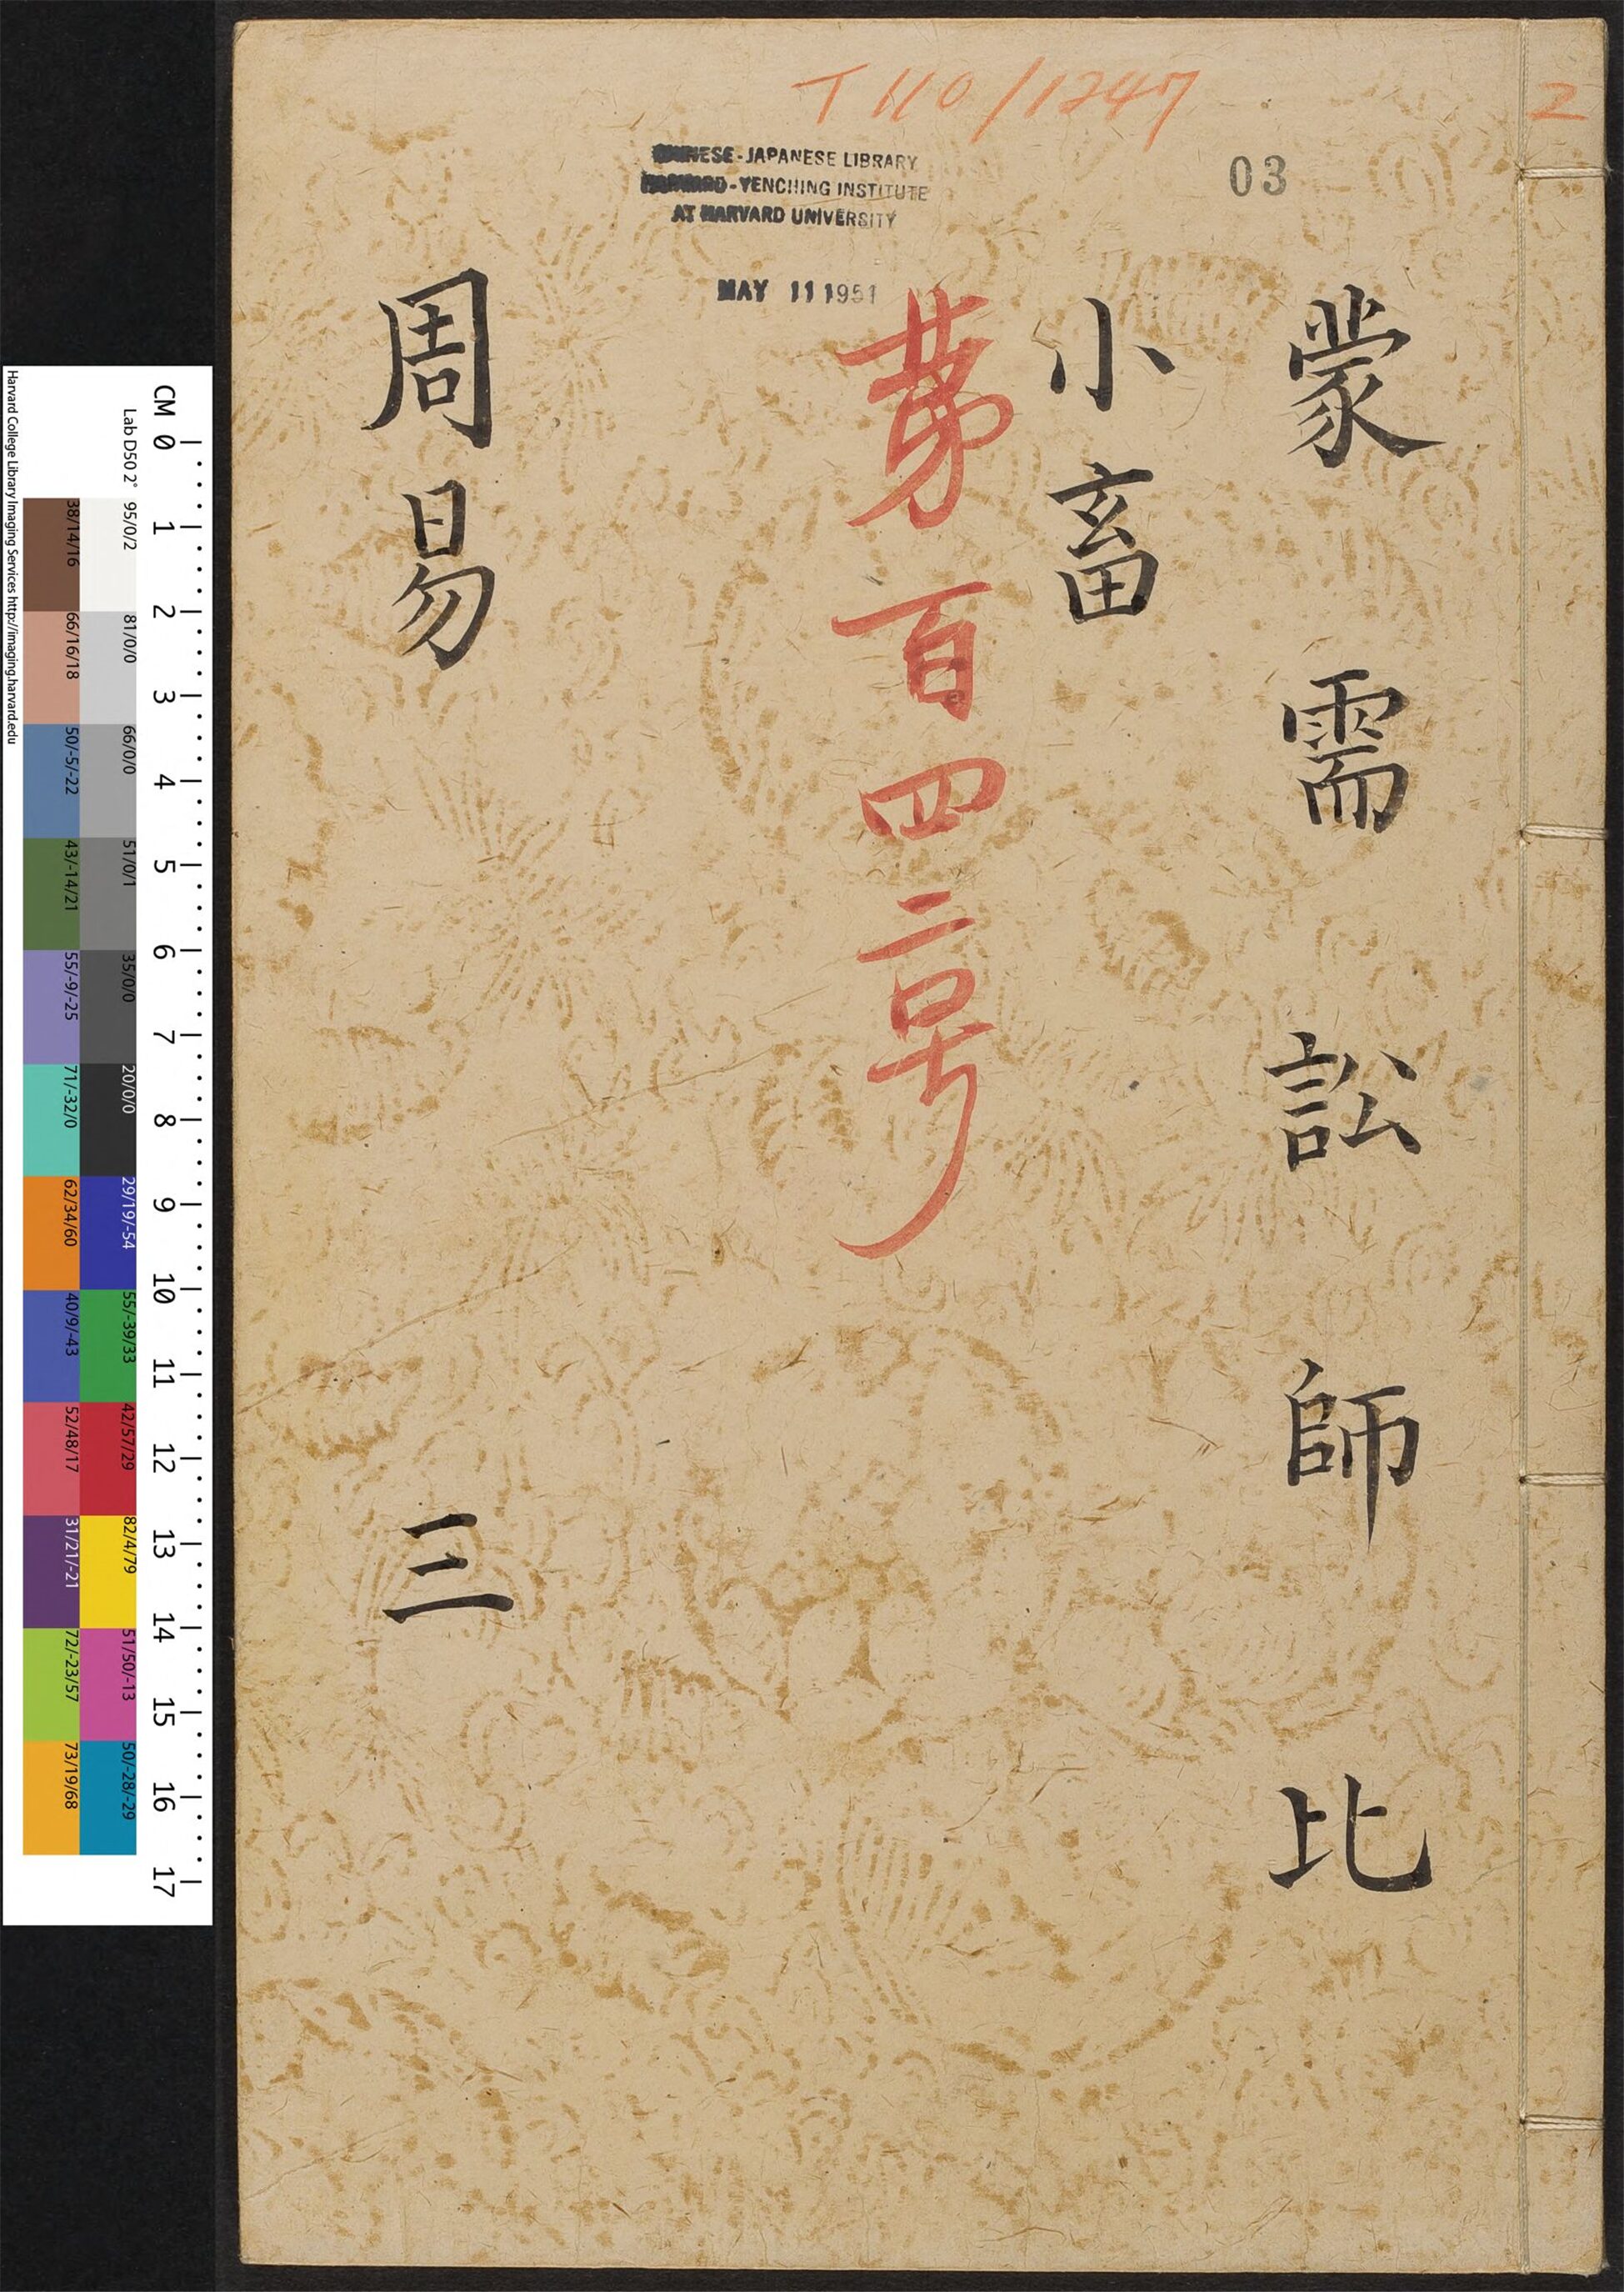 T 110/1247
2
03
CHINESE-JAPANESE LIBRARY
HARVARD-YENCHING INSTITUTE
AT HARVARD UNIVERSITY
MAY 11 1951
蒙 需 訟 師 比
小畜
苐百四二号
周易 三
CM 0 1 2 3 4 5 6 7 8 9 10 11 12 13 14 15 16 17
Lab D50 2° 95/0/2 81/0/0 66/0/0 51/0/1 35/0/0 20/0/0 29/19/-54 55/-39/33 42/57/29 82/4/79 51/50/-13 50/-28/-29
38/14/16 66/16/18 50/-5/-22 43/-14/21 55/-9/-25 71/-32/0 62/34/60 40/9/-43 52/48/17 31/21/-21 72/-23/57 73/19/68
Harvard College Library Imaging Services http://imaging.harvard.edu